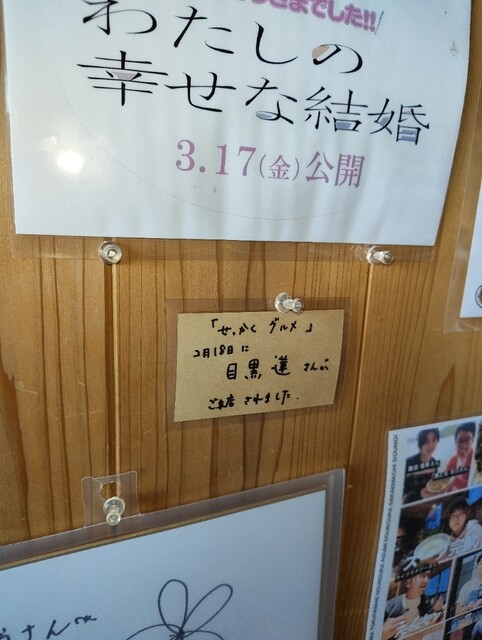 ごさまでした!!
わたしの
幸せな結婚
3.17(金)公開
「せっかくグルメ」
2月18日に
目黒蓮さんが
ご来店されました。
さんへ